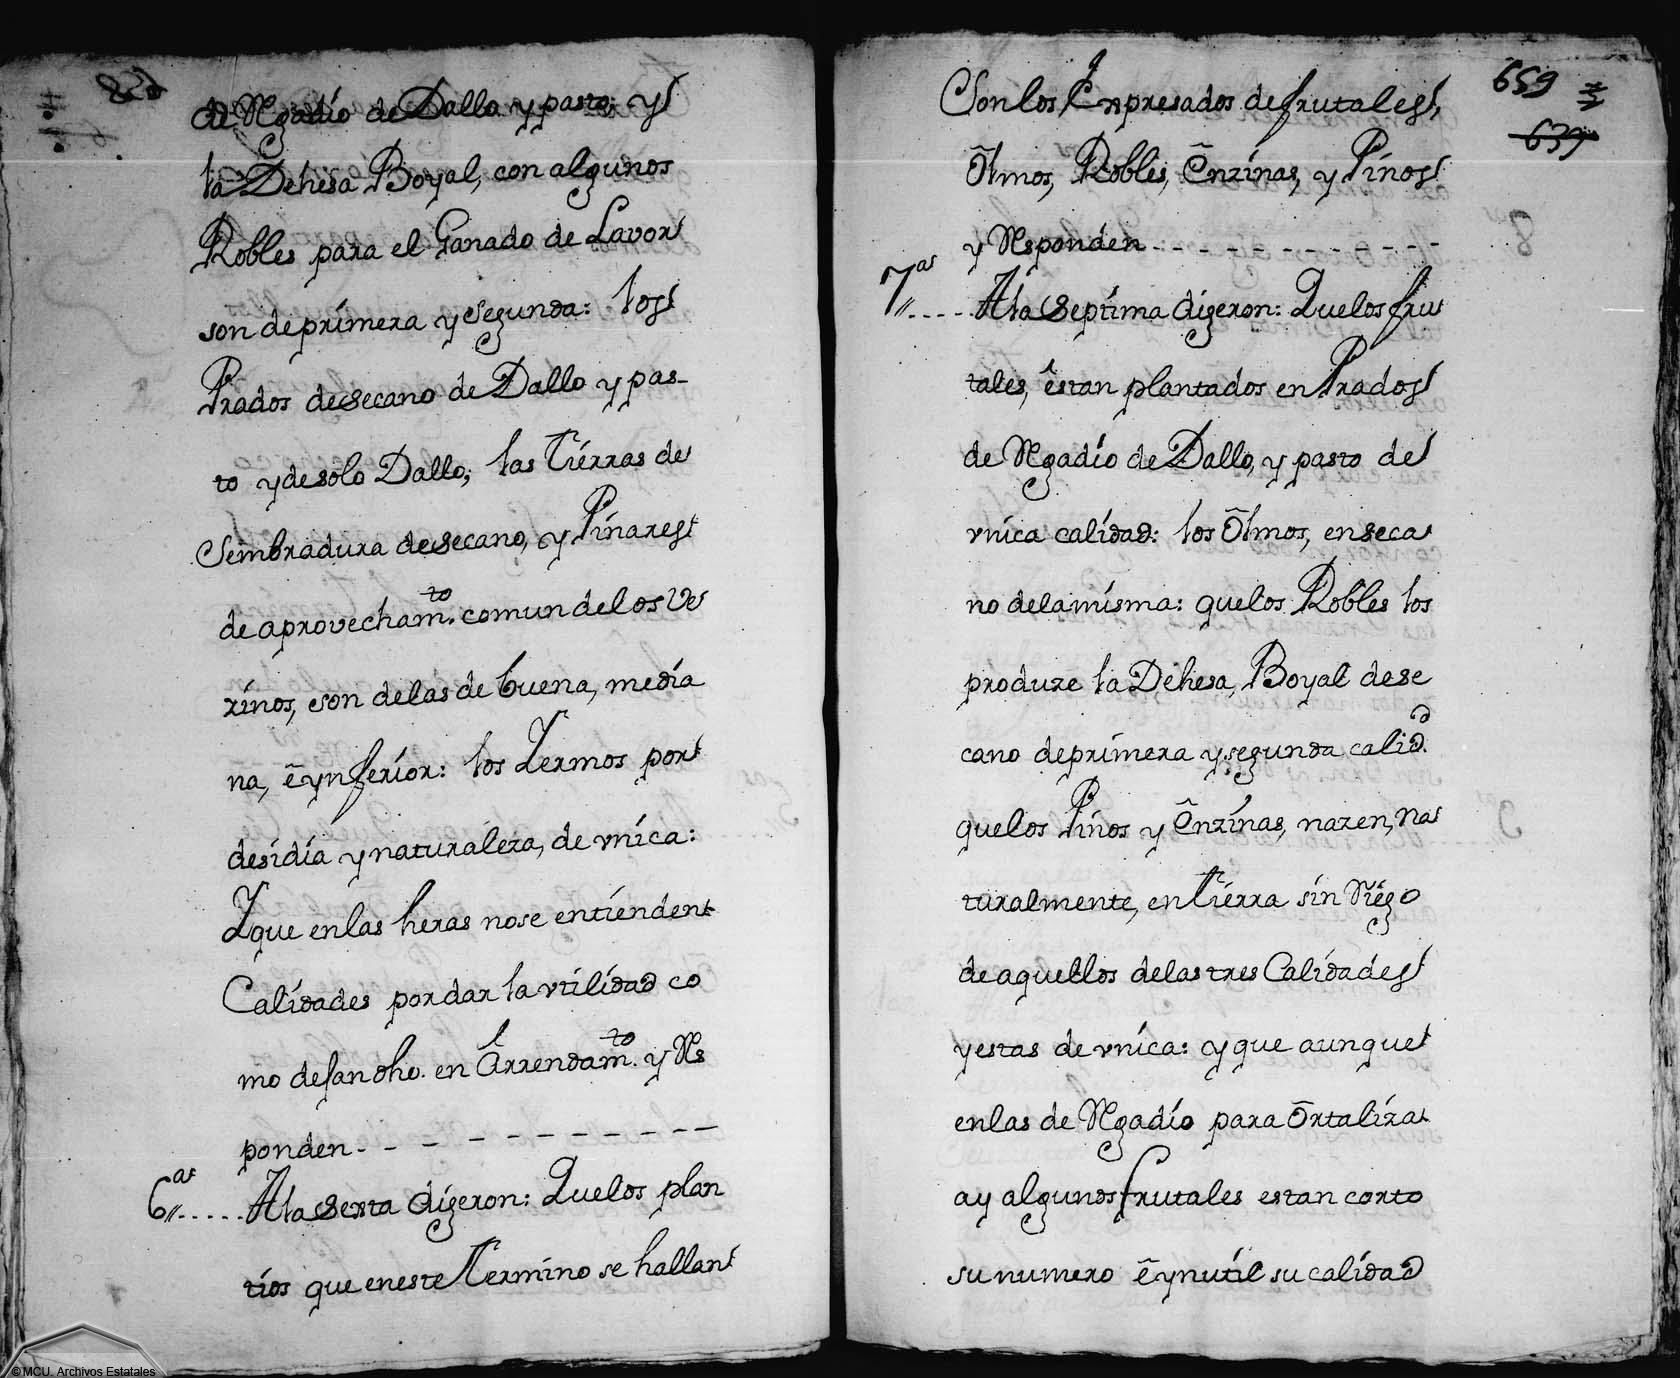 de Rgadío de Dallo y pasto; y
la Dehesa Boyal, con algunos
Robles para el Ganado de Lavor
son de prímera y Segunda: los
Prados de secano de Dallo y pas-
to y de solo Dallo; las Tíerras de
Sembradura de secano, y Pínares
de aprovecham.to comun de los Ve
zínos, son de las de buena, medía
na, é ynferíor: los Yermos por
desidía y naturaleza, de vníca:
Y que en las heras no se entíenden
Calídades por dar la vtílídad co
mo de san dho. en Arrendam.to y Rs
ponden - - - - - - - - - - -
6,,as ..... A la Sexta digeron: Que los plan
tíos que en este Termino se hallan
659
639
Son los Expresados de frutales,
Olmos, Robles, Enzínas, y Pínos
y Rsponden - - - - - - - - - -
7,,as ..... A la Septíma digeron: Que los fru
tales, estan plantados en Prados
de Rgadío de Dallo, y pasto de
vníca calídad: los Olmos, en seca
no de la mísma: que los Robles los
produze la Dehesa, Boyal de se
cano de prímera y segunda calid.d
que los Pínos y Enzínas, nazen, na
turalmente, en tíerra sin Ríego
de aquellos de las tres Calídades
y estas de vníca: y que aunque
en las de Rgadío para Ortalíza
ay algunos frutales estan corto
su numero é ynutíl su calídad
© MCU. Archivos Estatales